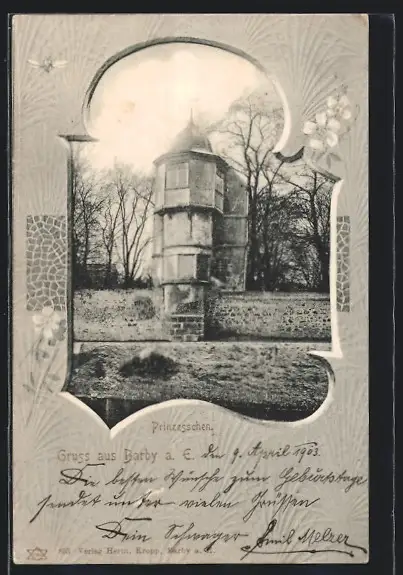 Prinzesschen.
Gruss aus Barby a. E. den 9. April 1903.
Die besten Wünsche zum Geburtstage
sendet unter vielen Grüssen
Dein Schwager Emil Melzer
Verlag Herm. Kropp, Barby a. E.